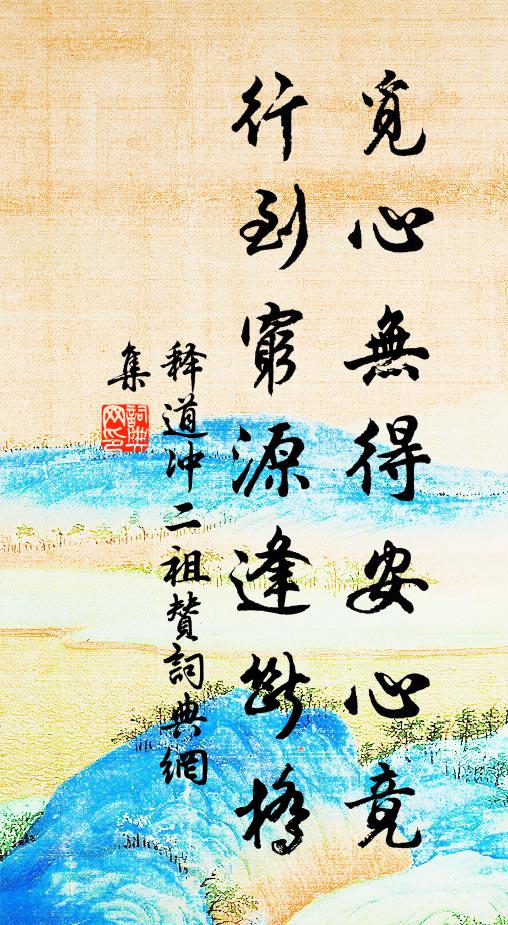 覓心無得安心竟
行到窮源逢斷橋
释道冲二祖贊詞典網
集
詞典
网印